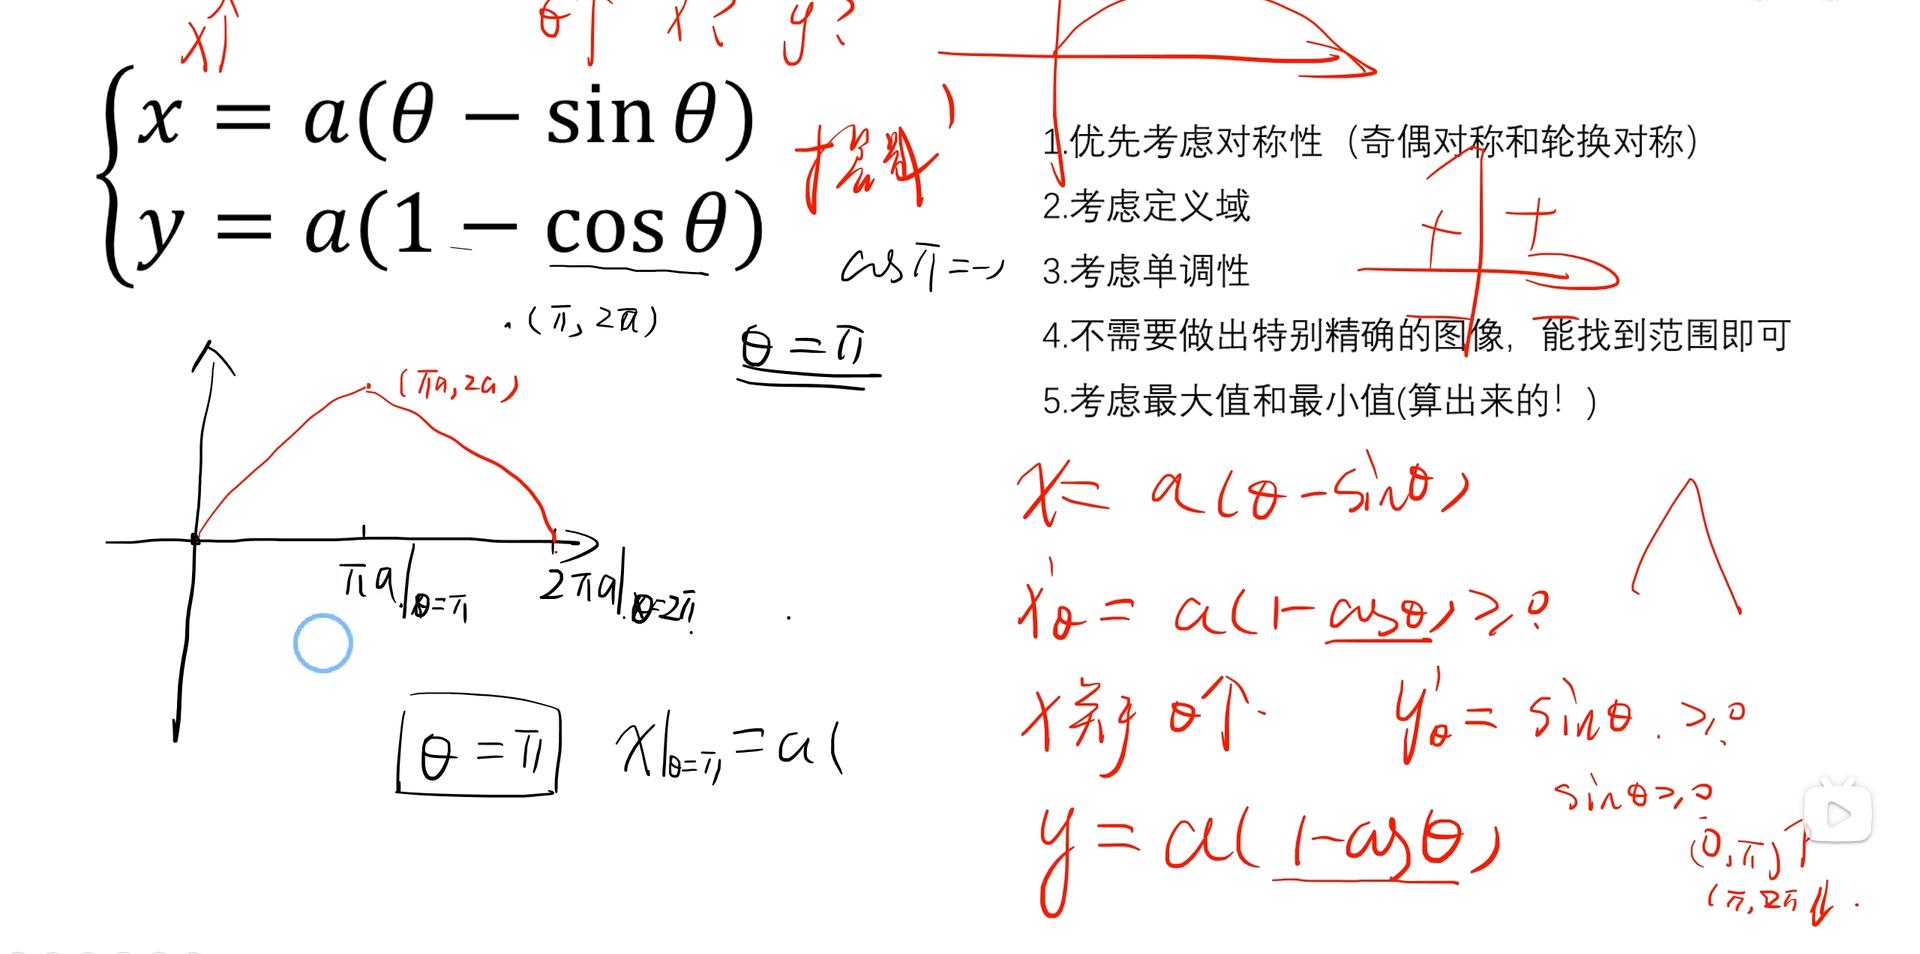 x↑
θ↑ x? y?
x = a(θ − sin θ)
y = a(1 − cos θ)
摆线
cosπ=-1
.(π, 2a)
θ=π
(πa,2a)
πa|θ=π
2πa|θ=2π
θ=π
x|θ=π = a(
1.优先考虑对称性（奇偶对称和轮换对称）
2.考虑定义域
3.考虑单调性
4.不需要做出特别精确的图像，能找到范围即可
5.考虑最大值和最小值(算出来的！)
+ +
x= a(θ-sinθ)
x'θ= a(1-cosθ)≥0
x关于θ↑.
y'θ= sinθ.≥0
sinθ≥0
(0,π)↑
(π,2π)↓.
y=a(1-cosθ)